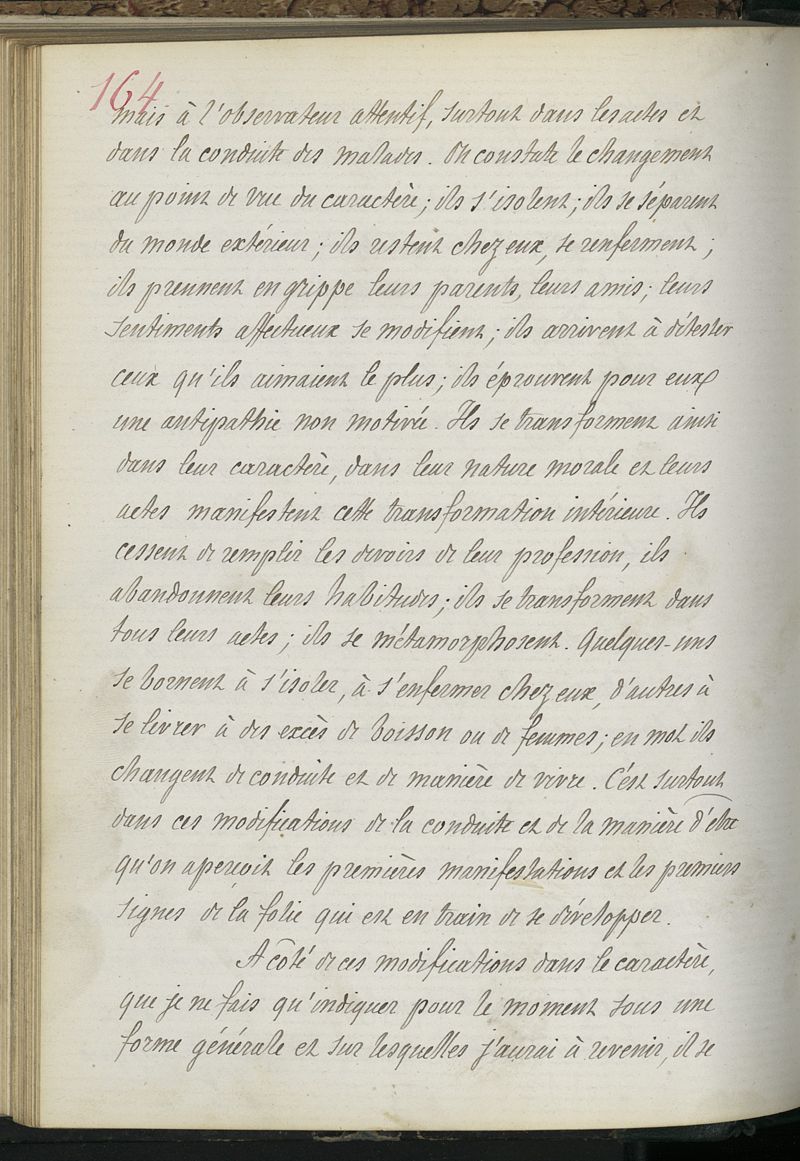 164
mais à l'observateur attentif, surtout dans les actes et
dans la conduite des malades. On constate le changement
au point de vue du caractère; ils s'isolent; ils se séparent
du monde extérieur; ils restent chez eux, se renferment;
ils prennent en grippe leurs parents, leurs amis; leurs
sentiments affectueux se modifient; ils arrivent à détester
ceux qu'ils aimaient le plus; ils éprouvent pour eux
une antipathie non motivée. Ils se transforment ainsi
dans leur caractère, dans leur nature morale et leurs
actes manifestent cette transformation intérieure. Ils
cessent de remplir les devoirs de leur profession, ils
abandonnent leurs habitudes; ils se transforment dans
tous leurs actes; ils se métamorphosent. Quelques-uns
se bornent à s'isoler, à s'enfermer chez eux, d'autres à
se livrer à des excès de boisson ou de femmes; en mot ils
changent de conduite et de manière de vivre. C'est surtout
dans ces modifications de la conduite et de la manière d'être
qu'on aperçoit les premières manifestations et les premiers
signes de la folie qui est en train de se développer.
A côté de ces modifications dans le caractère,
que je ne fais qu'indiquer pour le moment sous une
forme générale et sur lesquelles j'aurai à revenir, il se